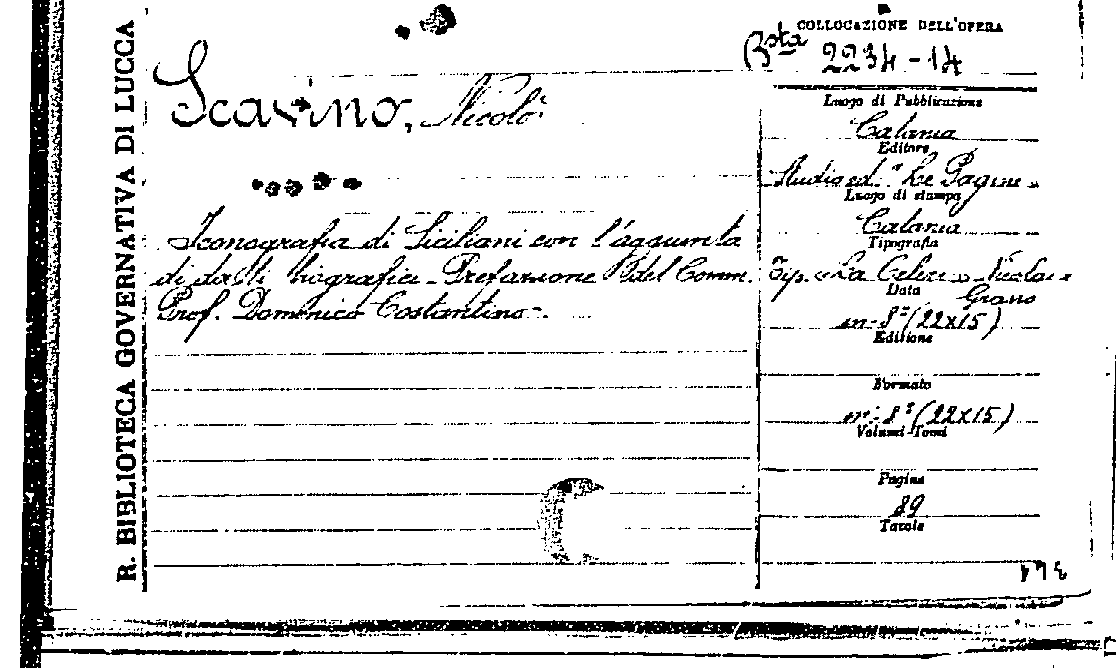 R. BIBLIOTECA GOVERNATIVA DI LUCCA
COLLOCAZIONE DELL'OPERA
Bsta 2234-14
Scavino, Nicolò
Iconografia di Siciliani con l'aggiunta
di dati biografici - Prefazione del Comm.
Prof. Domenico Costantino -.
Luogo di Pubblicazione
Catania
Editore
Studio ed. "Le Pagine"
Luogo di stampa
Catania
Tipografia
Tip. "La Celere" Nicolao
Grano
Data
in-8° (22x15)
Edizione
Formato
in-8° (22x15)
Volumi-Tomi
Pagine
89
Tavole